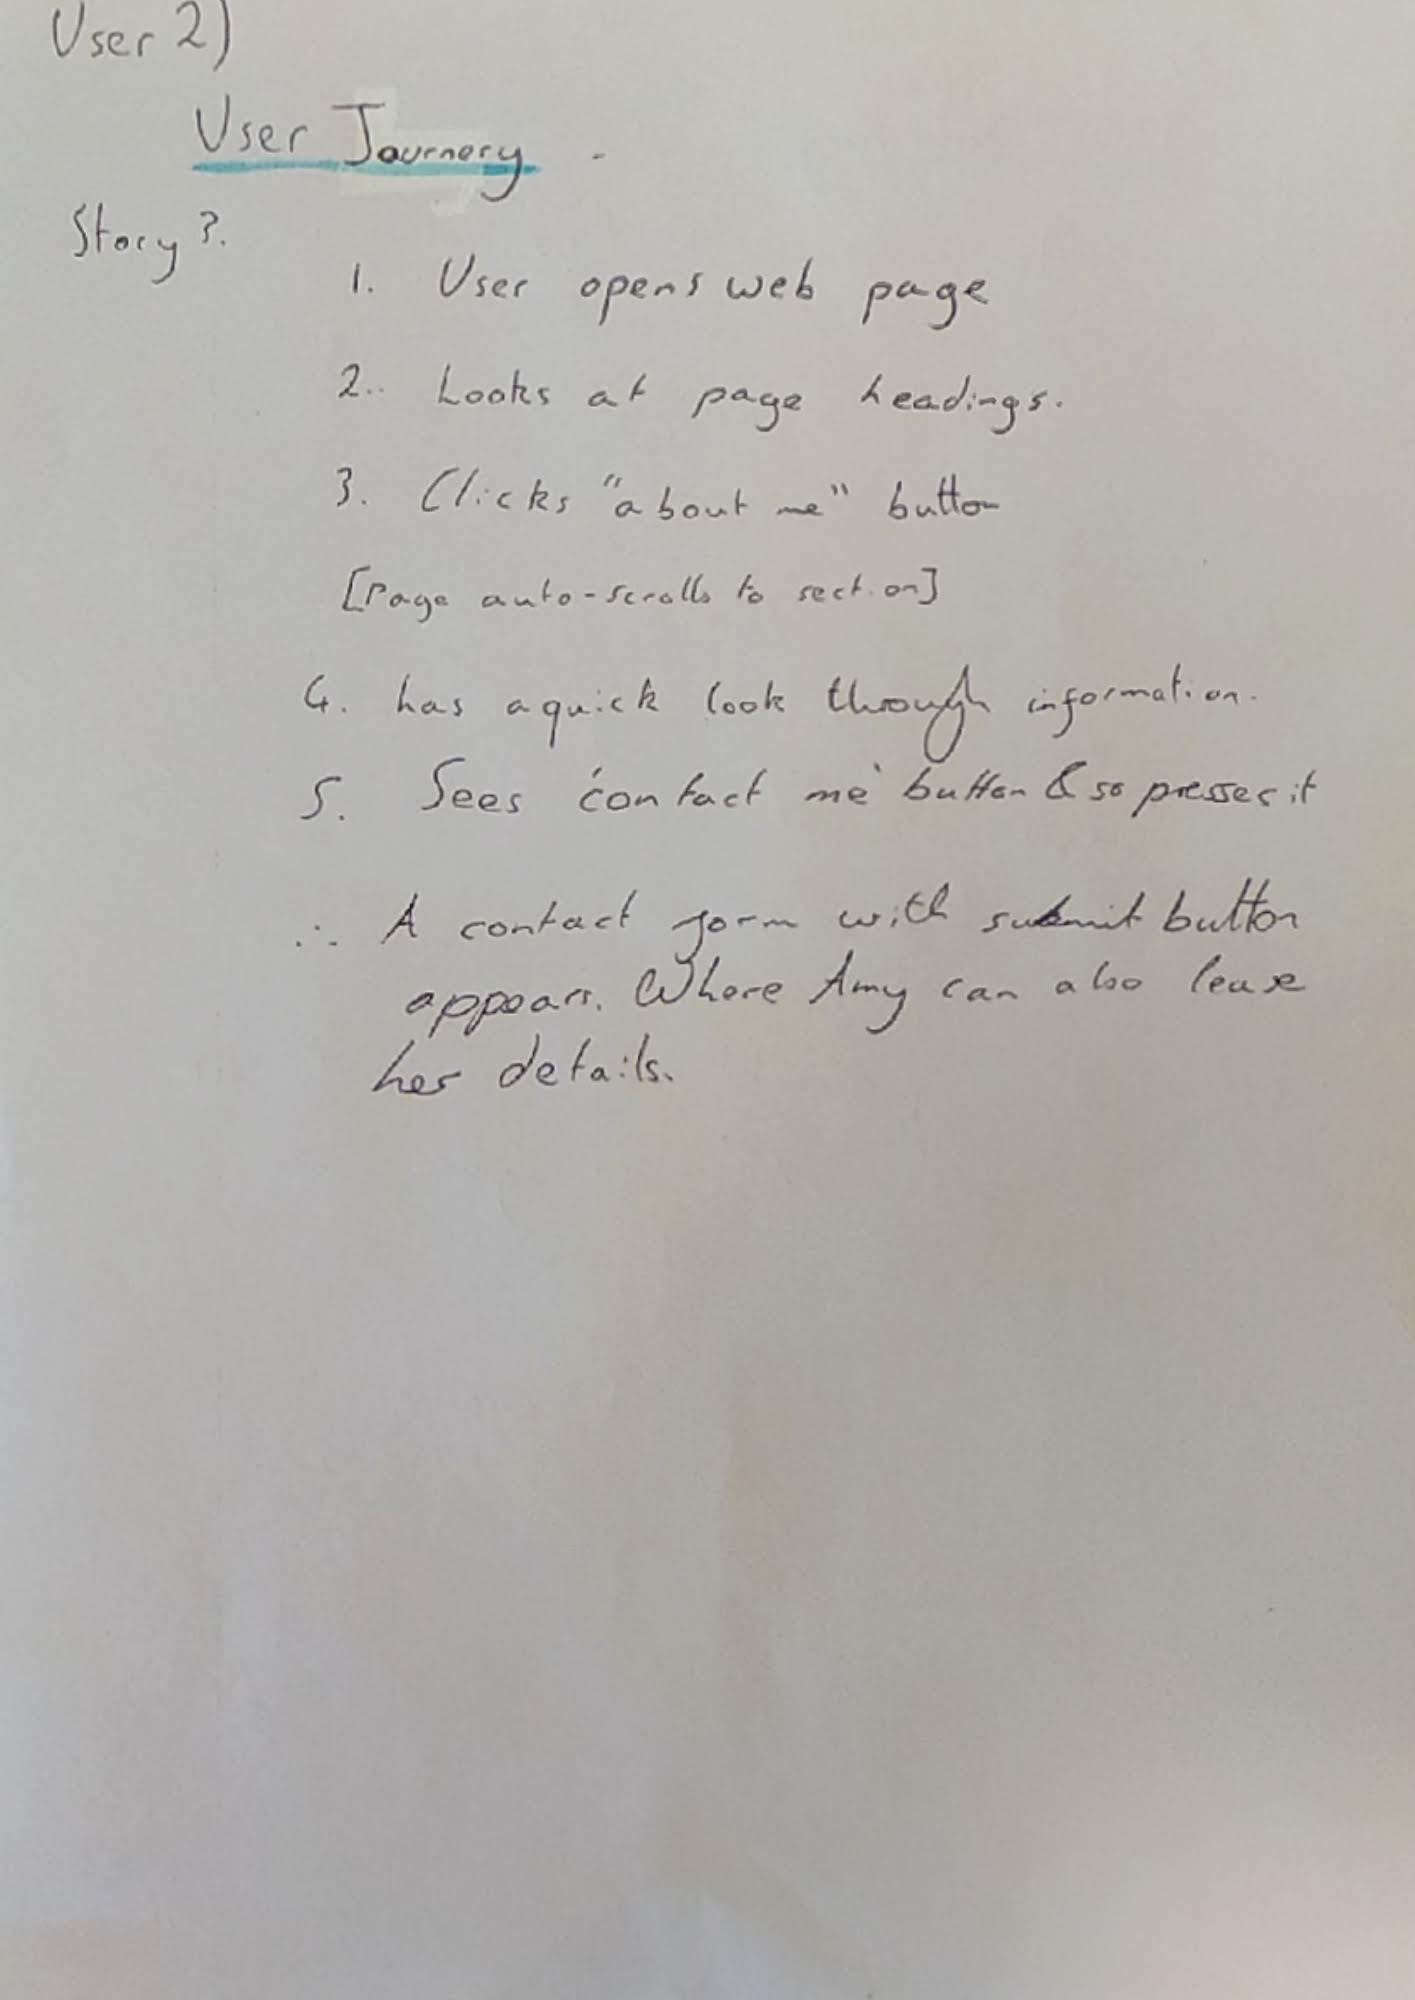 User 2)
User Journery -
Story 3.
1. User opens web page
2.. Looks at page headings.
3. Clicks "about me" button
[Page auto-scrolls to section]
4. has a quick look through information.
5. Sees 'contact me' button & so presses it
∴ A contact form with submit button
appears. Where Amy can also leave
her details.